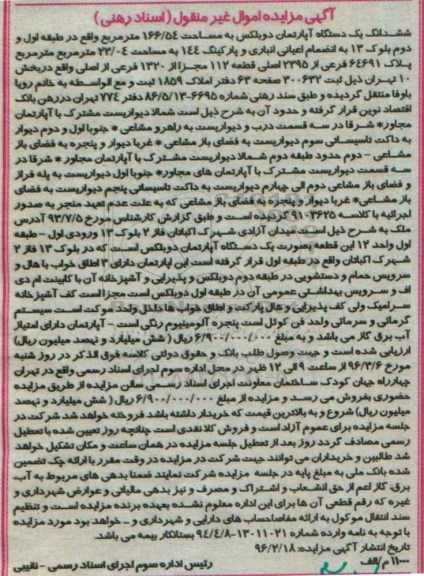 آگهی مزایده اموال غیر منقول ( اسناد رهنی )
ششدانگ یک دستگاه آپارتمان دوبلکس به مساحت ۱۶۶/۵۴ مترمربع واقع در طبقه اول و
دوم بلوک ۱۳ به انضمام اعیانی انباری و پارکینگ ۱۴۴ به مساحت ۲۳/۰۴ مترمربع مترمربع
پلاک ۶۴۶۹۱ فرعی از ۲۳۹۵ اصلی قطعه ۱۱۲ مجزا از ۱۳۲۰ فرعی از اصلی واقع دربخش
۱۰ تهران ذیل ثبت ۳۰۰۶۳۲ صفحه ۶۳ دفتر املاک ۱۸۵۹ ثبت و مع الواسطه به خانم رویا
باوفا منتقل گردیده و طبق سند رهنی شماره ۶۶۹۵-۸۶/۵/۱۳ دفتر ۷۷۴ تهران دررهن بانک
اقتصاد نوین قرار گرفته و حدود آن به شرح ذیل است شمالا دیواریست مشترک با آپارتمان
مجاور* شرقا در سه قسمت درب و دیواریست به راهرو مشاعی * جنوبا اول و دوم دیوار
به داکت تاسیساتی سوم دیواریست به فضای باز مشاعی * غربا دیوار و پنجره به فضای باز
مشاعی - دوم حدود طبقه دوم شمالا دیواریست مشترک با آپارتمان مجاور * شرقا در
سه قسمت دیواریست مشترک با آپارتمان های مجاور* جنوبا اول دیواریست به پله فرار
و فضای باز مشاعی دوم الی چهارم دیواریست به داکت تاسیساتی پنجم دیواریست به فضای
باز مشاعی* غربا دیوار و پنجره به فضای باز مشاعی که به علت عدم تعهد منجر به صدور
اجرائیه با کلاسه ۹۱۰۳۶۲۵ گردیده است و طبق گزارش کارشناسی مورخ ۹۳/۷/۵ آدرس
ملک به شرح ذیل است میدان آزادی شهرک اکباتان فاز ۲ بلوک ۱۳ ورودی اول - طبقه
اول واحد ۱۲ این قطعه بصورت یک دستگاه آپارتمان دوبلکس است که در بلوک ۱۳ فاز ۲
شهرک اکباتان واقع در طبقه اول قرار گرفته است این آپارتمان دارای ۳ اطاق خواب با هال و
سرویس حمام و دستشویی در طبقه دوم دوبلکس و پذیرایی و آشپزخانه آن با کابینت ام دی
اف و سرویس بهداشتی عمومی آن در طبقه اول دوبلکس است مجزا است کف آشپزخانه
سرامیک ولی کف پذیرایی و هال پارکت و اطاق خواب ها داخل واحد موکت است سیستم
گرمائی و سرمائی واحد فن کوئل است پنجره آلومینیوم رنگی است - آپارتمان دارای امتیاز
آب برق گاز می باشد و به مبلغ ۶/۹۰۰/۰۰۰/۰۰۰ ریال ( شش میلیارد و نهصد میلیون ریال)
ارزیابی شده است و جهت وصول طلب بانک و حقوق دولتی کلاسه فوق الذکر در روز شنبه
مورخ ۹۶/۳/۶ از ساعت ۹ الی ۱۲ ظهر در محل اداره سوم اجرای اسناد رسمی واقع در تهران
چهارراه جهان کودک ساختمان معاونت اجرای اسناد رسمی سالن مزایده از طریق مزایده
حضوری بفروش می رسد و مزایده از مبلغ ۶/۹۰۰/۰۰۰/۰۰۰ ریال ( شش میلیارد و نهصد
میلیون ریال) شروع و به بالاترین قیمت که خریدار داشته باشد فروخته خواهد شد شرکت در
جلسه مزایده برای عموم آزاد است و فروش کلا نقدی است چنانچه روز تعیین شده با تعطیل
رسمی مصادف گردد روز بعد از تعطیل جلسه مزایده در همان ساعت و مکان تشکیل خواهد
شد طالبین و خریداران می توانند جهت شرکت در مزایده در وقت مقرر با ارائه چک تضمین
شده بانک ملی به مبلغ پایه در جلسه مزایده شرکت نمایند ضمنا بدهی های مربوط به آب
برق، گاز اعم از حق انشعاب و اشتراک و مصرف و نیز بدهی مالیاتی و عوارض شهرداری و
غیره که رقم قطعی آن ها برای این اداره معلوم نشده بعهده برنده مزایده است و تنظیم
سند انتقال موکول به ارائه مفاصاحساب های دارایی و شهرداری و .. خواهد بود مورد مزایده
با توجه به نامه وارده شماره ۱۳۰۱۱۰۲۱-۹۴/۴/۸ بستانکار بیمه می باشد.
تاریخ انتشار آگهی مزایده: ۹۶/۲/۱۸
۱۱۰۰۰ م/الف رئیس اداره سوم اجرای اسناد رسمی - نقیبی